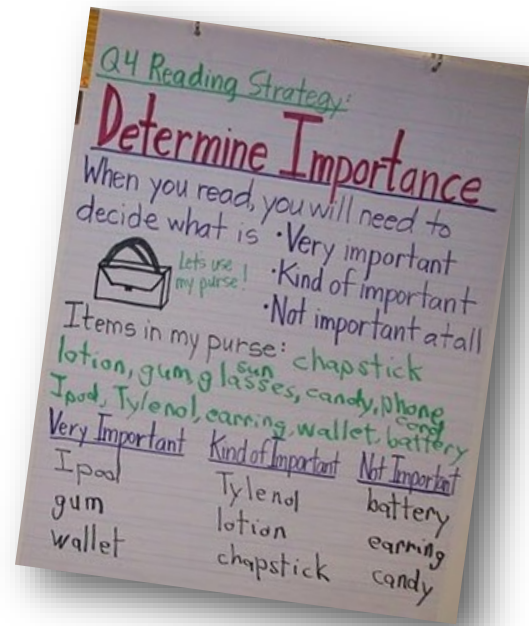 Q4 Reading Strategy:
Determine Importance
When you read, you will need to
decide what is
• Very important
• Kind of important
• Not important at all
Let's use
my purse!
Items in my purse: chapstick
lotion, gum, sunglasses, candy, phone cord
Ipod, Tylenol, earring, wallet, battery
Very Important Kind of Important Not Important
Ipod Tylenol battery
gum lotion earring
wallet chapstick candy